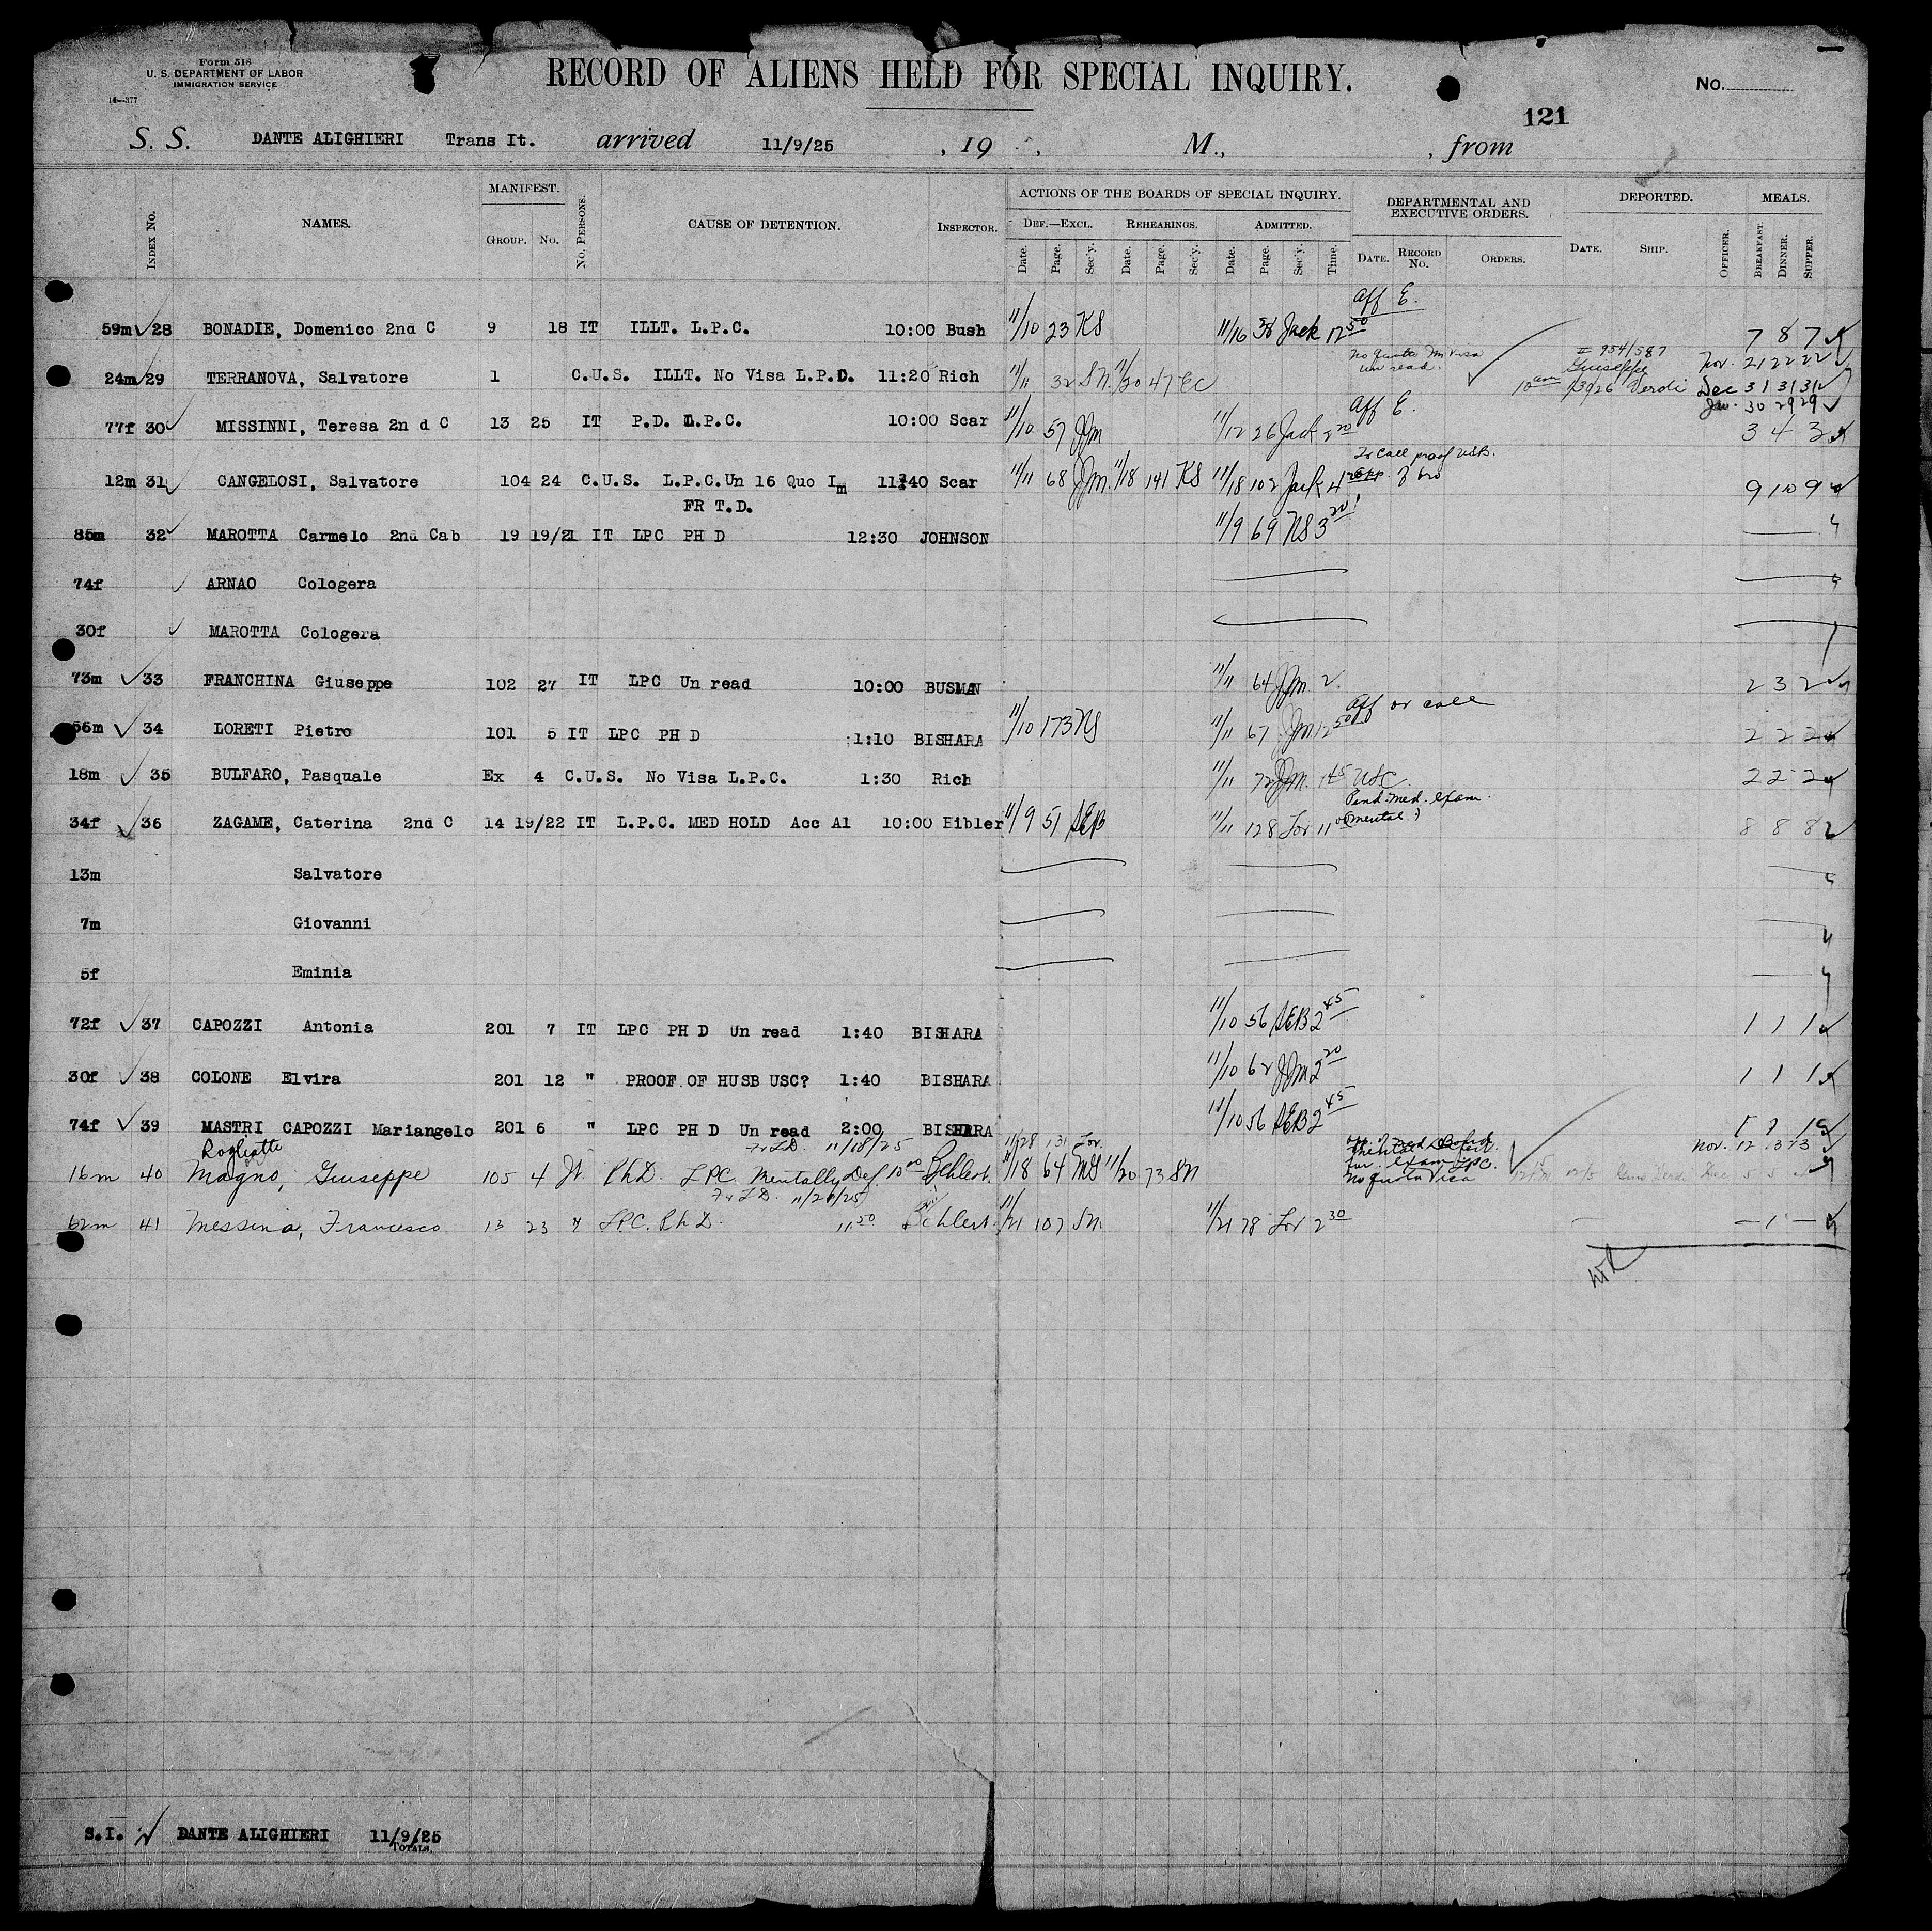 Form 518
U. S. DEPARTMENT OF LABOR
IMMIGRATION SERVICE
14—377
RECORD OF ALIENS HELD FOR SPECIAL INQUIRY.
No.
121
S. S. DANTE ALIGHIERI Trans It. arrived 11/9/25 , 19 , M., , from
INDEX No. NAMES. MANIFEST. GROUP. No. No. PERSONS. CAUSE OF DETENTION. INSPECTOR. ACTIONS OF THE BOARDS OF SPECIAL INQUIRY. DEF.—EXCL. REHEARINGS. ADMITTED. DEPARTMENTAL AND EXECUTIVE ORDERS. DEPORTED. MEALS.
Date. Page. Sec'y. Date. Page. Sec'y. Date. Page. Sec'y. Time. DATE. RECORD No. ORDERS. DATE. SHIP. OFFICER. BREAKFAST. DINNER. SUPPER.
Aff E.
59m 28 BONADIE, Domenico 2nd C 9 18 IT ILLT. L.P.C. 10:00 Bush 11/10 23 KS 11/16 38 Jack 12 50 7 8 7
No quota Im Visa
un read.
I 954/587
24m 29 TERRANOVA, Salvatore 1 C.U.S. ILLT. No Visa L.P.D. 11:20 Rich 11/11 32 SN. 11/20 47 EC Giuseppe Nov. 21 22 22
10 am 1/3/26 Verdi Dec 31 31 31
Jan. 30 29 29
Aff E.
77f 30 MISSINNI, Teresa 2n d C 13 25 IT P.D. L.P.C. 10:00 Scar 11/10 57 JJm 11/12 26 Jack 2 20 3 4 3
To call proof USB.
12m 31 CANGELOSI, Salvatore 104 24 C.U.S. L.P.C.Un 16 Quo Im 11:40 Scar 11/11 68 JJm. 11/18 141 KS 11/18 102 Jack 4 of bro 9 10 9
FR T.D.
85m 32 MAROTTA Carmelo 2nd Cab 19 19/21 IT LPC PH D 12:30 JOHNSON 11/9 69 NS 3 20
74f ARNAO Cologera
30f MAROTTA Cologera
73m 33 FRANCHINA Giuseppe 102 27 IT LPC Un read 10:00 BUSMAN 11/11 64 JJm. 2 2 3 2
Aff or call
56m 34 LORETI Pietro 101 5 IT LPC PH D 1:10 BISHARA 11/10 173 NS 11/11 67 JJm 12 50 2 2 2
18m 35 BULFARO, Pasquale Ex 4 C.U.S. No Visa L.P.C. 1:30 Rich 11/11 72 JJm. 1 45 USC. 2 2 2
Pend. med. exam.
34f 36 ZAGAME, Caterina 2nd C 14 19/22 IT L.P.C. MED HOLD Acc Al 10:00 Eibler 11/9 51 SEB 11/11 128 Lov 11 00 (mental) 8 8 8
13m Salvatore
7m Giovanni
5f Eminia
72f 37 CAPOZZI Antonia 201 7 IT LPC PH D Un read 1:40 BISHARA 11/10 56 SEB 2 45 1 1 1
30f 38 COLONE Elvira 201 12 " PROOF OF HUSB USC? 1:40 BISHARA 11/10 62 JJm 2 20 1 1 1
74f 39 MASTRI CAPOZZI Mariangelo 201 6 " LPC PH D Un read 2:00 BISHARA 11/10 56 SEB 2 45 1 1 1
11/18/25 11/28 131 Lov. Mental Defect. Nov. 12 13 13
16m 40 Magno, Giuseppe 105 4 It. Ph.D. LPC. Mentally Def 10 00 Behlert. 11/18 64 MS 11/20 73 SN fur. exam LPC.
No quota Visa
11/21/25
62m 41 Messina, Francesco 13 23 " LPC. Ph D. 11 50 Behlert. 11/21 107 SN. 11/21 78 Lov 2 30 — 1 —
S.I. DANTE ALIGHIERI 11/9/25
TOTALS.